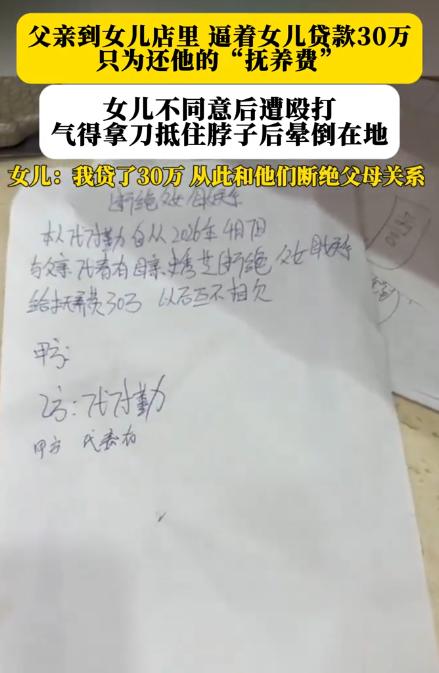 父亲到女儿店里 逼着女儿贷款30万
只为还他的“抚养费”
女儿不同意后遭殴打
气得拿刀抵住脖子后晕倒在地
女儿：我贷了30万 从此和他们断绝父母关系
断绝父女母女关系
本人代 勤自从2026年4月7日
与父亲代春有母亲 秀芝断绝父女母女关系
给抚养费30万 以后互不相欠
甲方:
乙方:代 勤
甲方 代春有